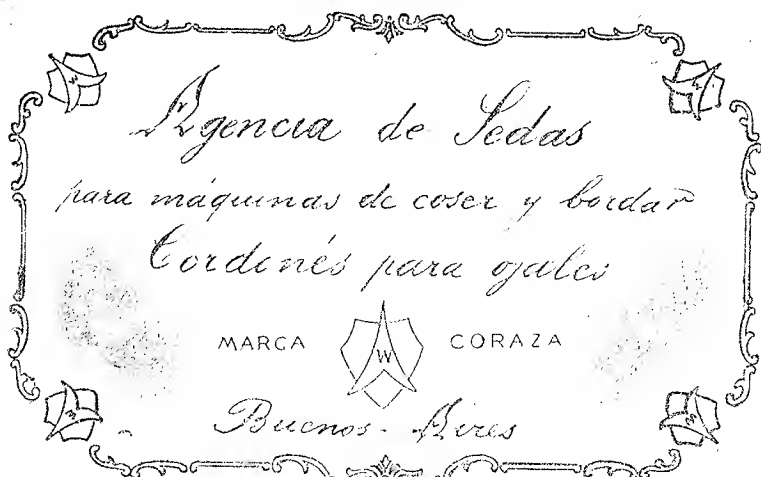 Agencia de Sedas
para máquinas de coser y bordar
Cordonés para ojales
MARCA W CORAZA
Buenos-Aires
W
W
W
W